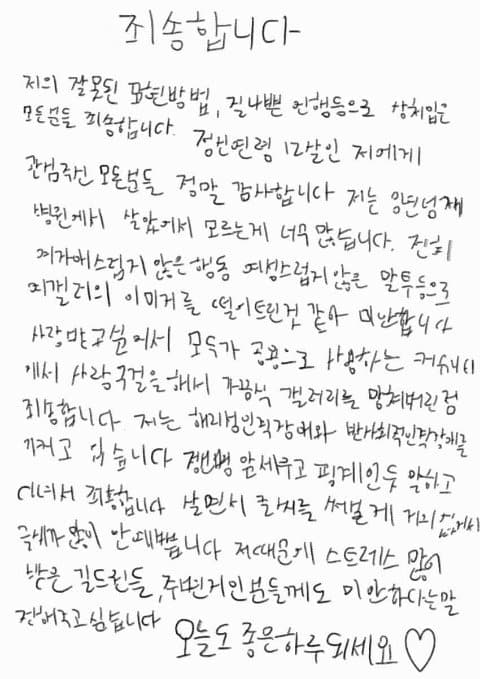 죄송합니다
저의 잘못된 표현방법, 질나쁜 언행등으로 상처입은
모든분들 죄송합니다. 정신연령 12살인 저에게
관심주신 모든분들 정말 감사합니다 저는 9년넘게
병원에서 살았어서 모르는게 너무 많습니다. 전혀
여자애스럽지 않은 행동 여성스럽지 않은 말투등으로
이미지를 떨어트린것 같아 미안합니다
에서 모두가 공용으로 사용하는 커뮤니티
에서 사랑구걸을해서 가끔식 갤러리를 망쳐버린점
죄송합니다 저는 해리성인격장애와 반사회적인격장애를
가지고 있습니다 앞세우고 핑계인듯 말하고
다녀서 죄송합니다 살면서 글씨를 써볼게 거의 없어서
글씨가 많이 안예쁩니다 저때문에 스트레스 많이
받은 길드원들, 주변지인분들께도 미안하다는말
전해주고싶습니다
오늘도 좋은하루되세요♡